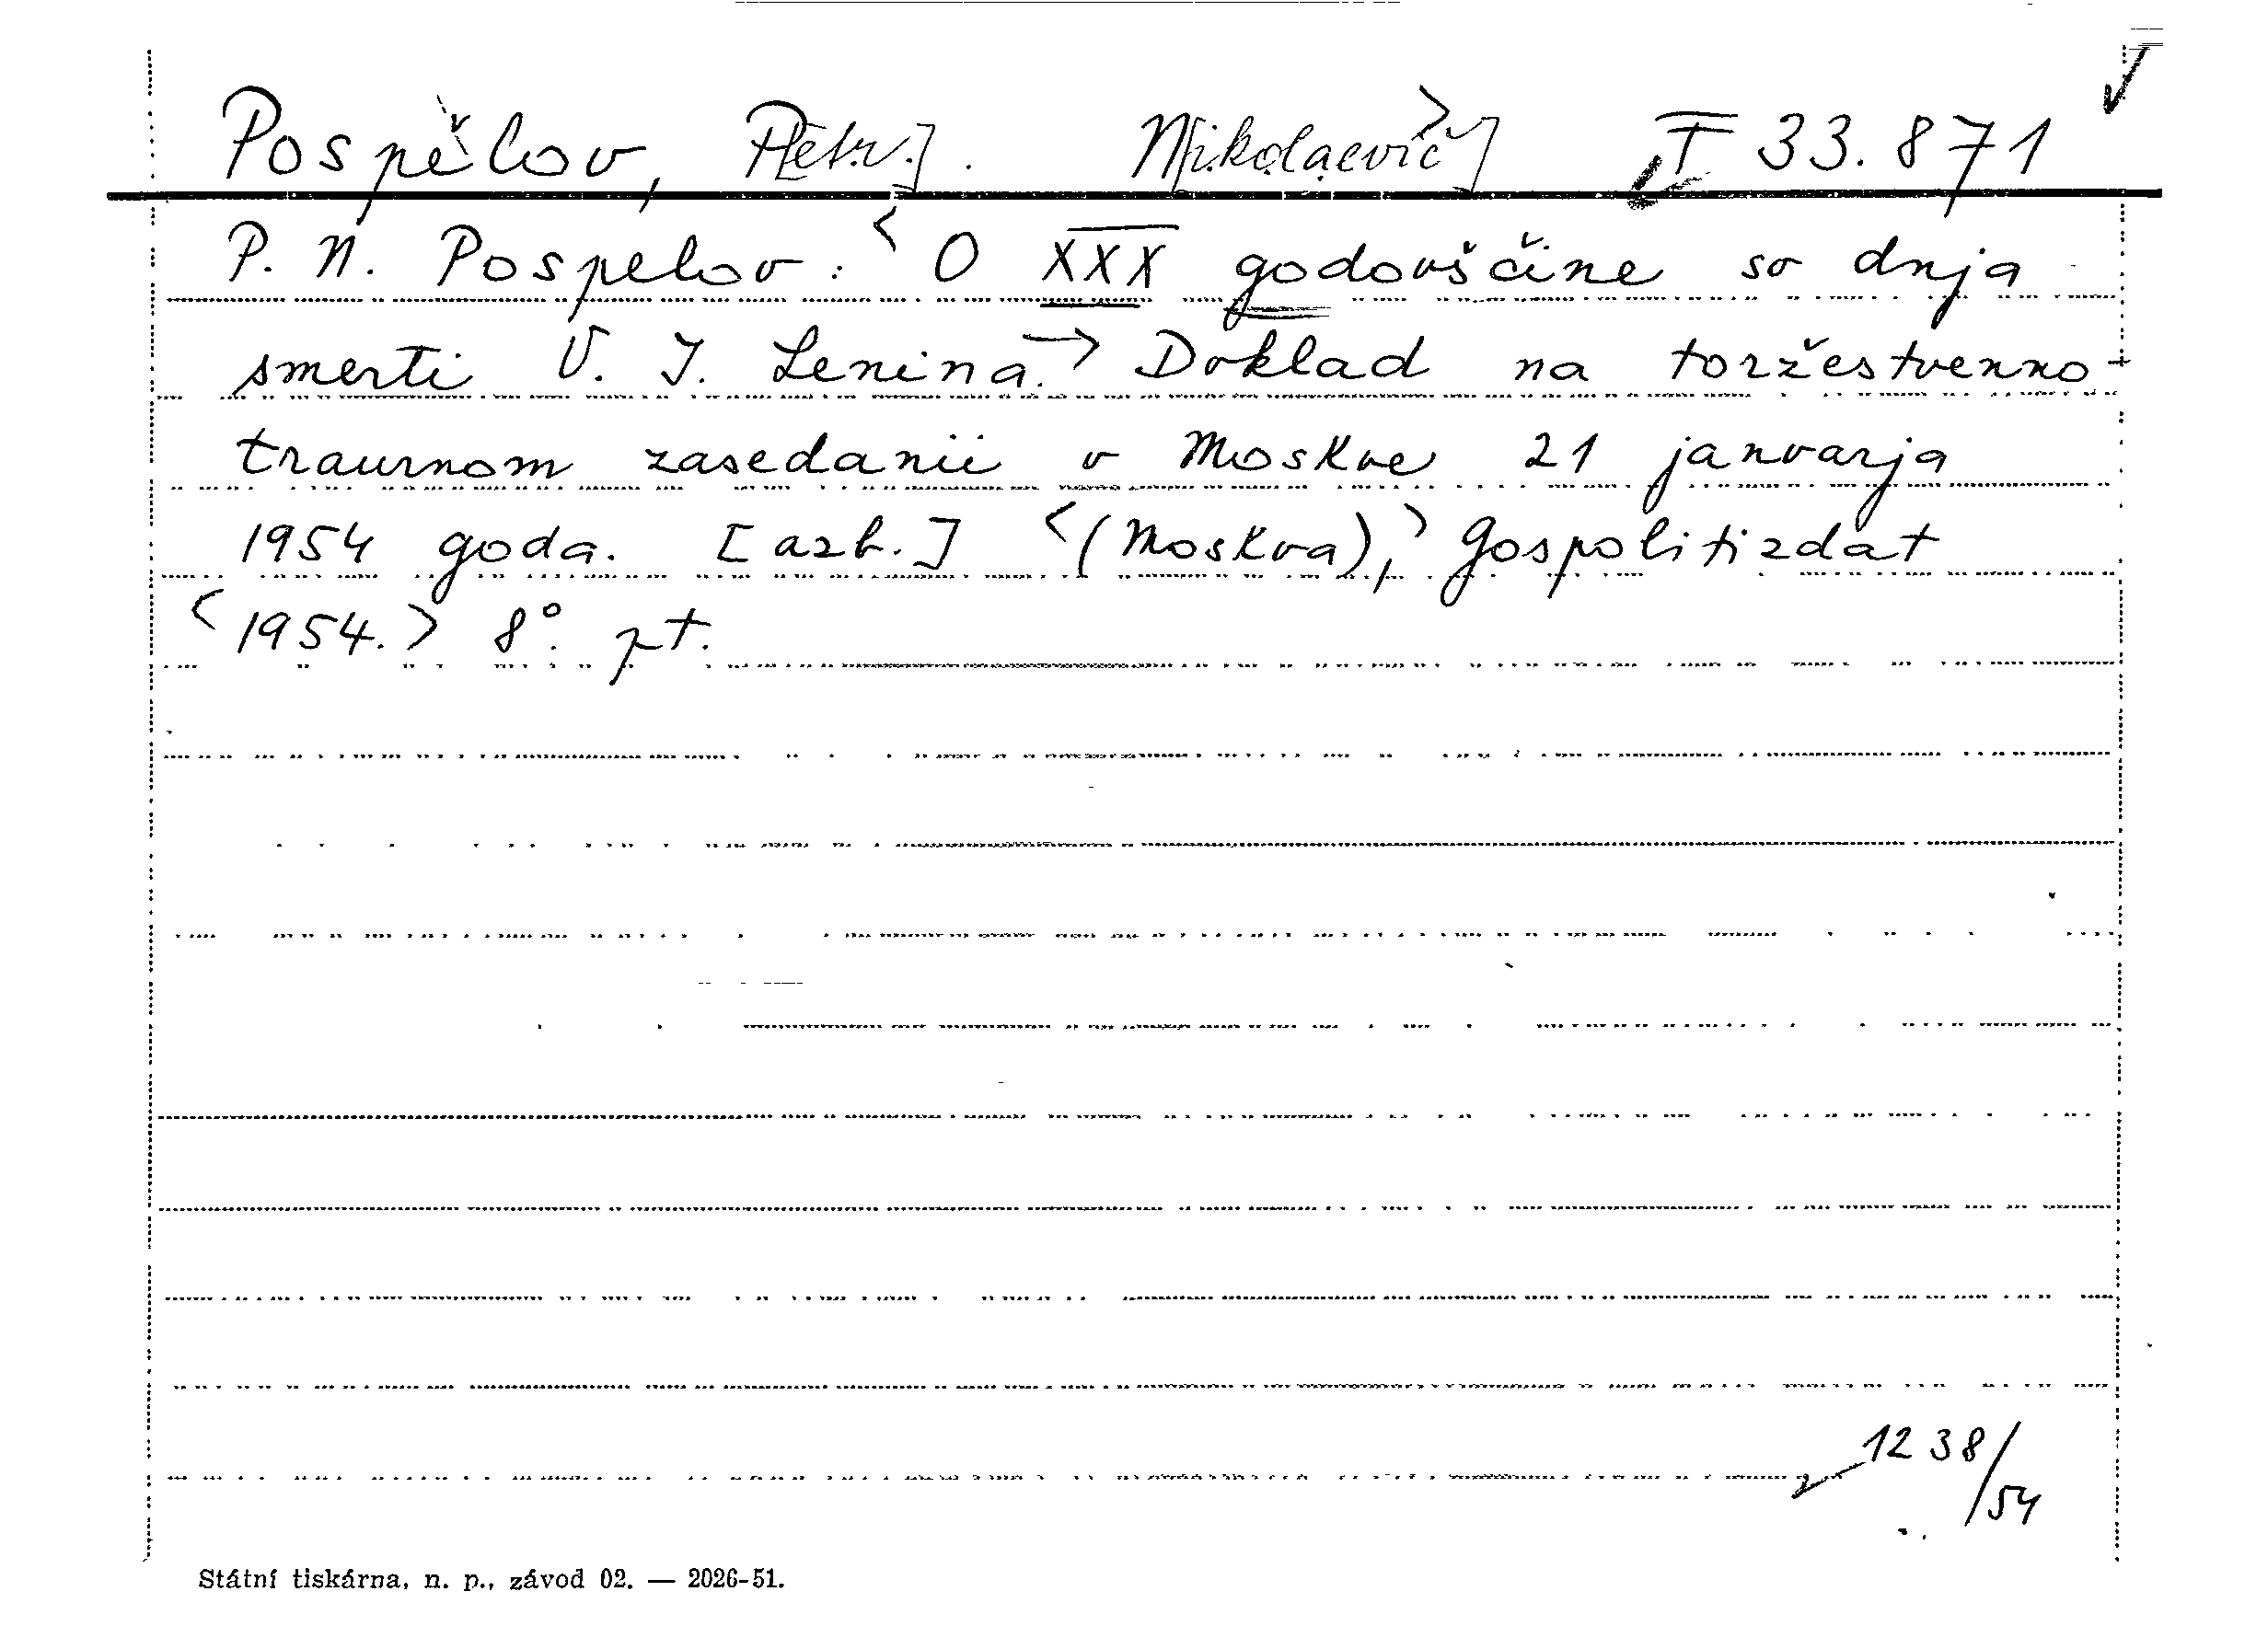 Pospělov, P[etr.]. N[ikolaevič] > T 33.871
P. N. Pospelov: < O XXX godovščine so dnja
smerti V. I. Lenina. > Doklad na toržestvenno-
traurnom zasedanii v Moskve 21 janvarja
1954 goda. [azb.] < (Moskva), > Gospolitizdat
< 1954. > 8°. pt.
1238/54
Státní tiskárna, n. p., závod 02. — 2026-51.